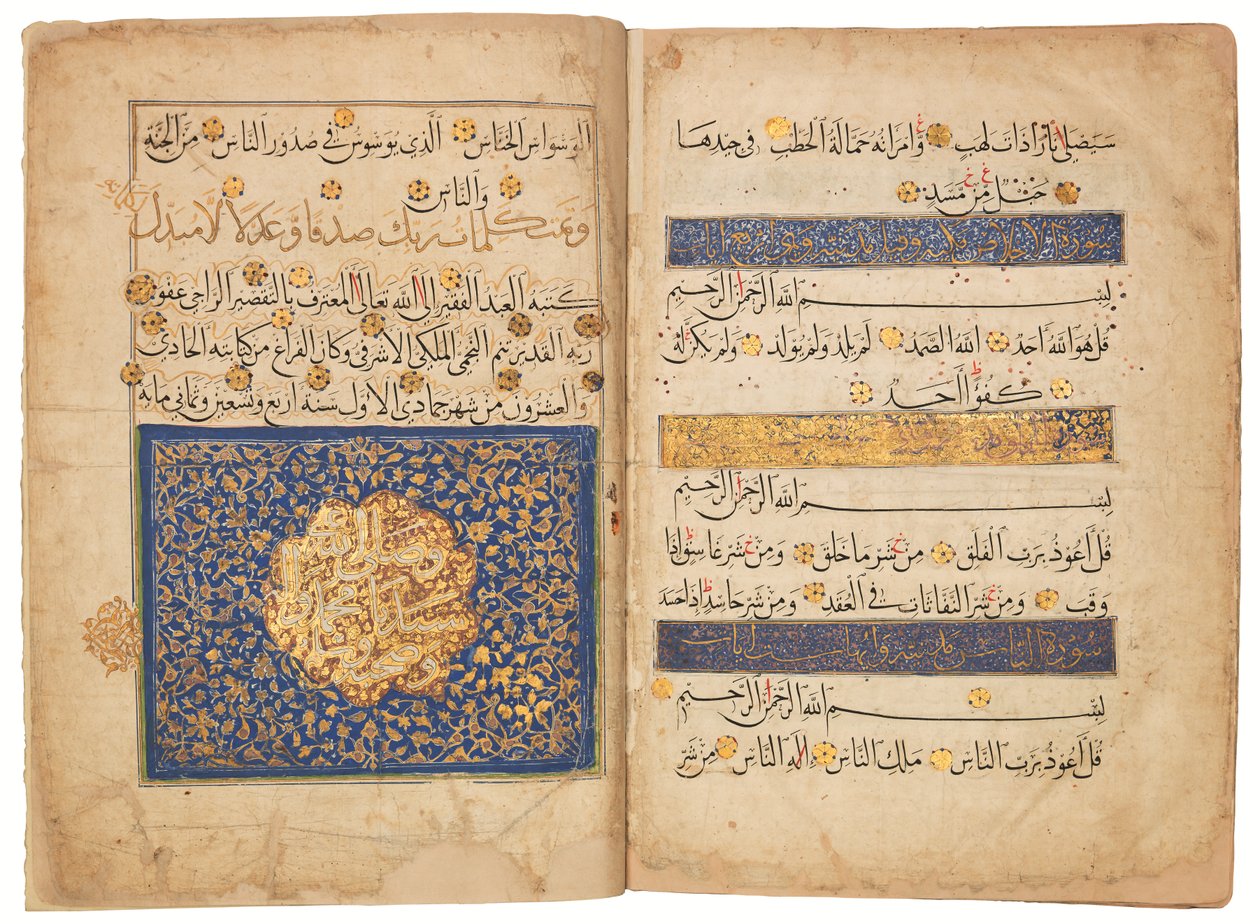 سَيَصْلَى نَارًا ذَاتَ لَهَبٍ وَامْرَأَتُهُ حَمَّالَةُ الْحَطَبِ فِي جِيدِهَا
حَبْلٌ مِّن مَّسَدٍ
سورة الاخلاص مكية وقيل مدنية وهي اربع ايات
بِسْمِ اللَّهِ الرَّحْمَنِ الرَّحِيمِ
قُلْ هُوَ اللَّهُ أَحَدٌ اللَّهُ الصَّمَدُ لَمْ يَلِدْ وَلَمْ يُولَدْ وَلَمْ يَكُنْ لَّهُ
كُفُؤًا أَحَدٌ
بِسْمِ اللَّهِ الرَّحْمَنِ الرَّحِيمِ
قُلْ أَعُوذُ بِرَبِّ الْفَلَقِ مِنْ شَرِّ مَا خَلَقَ وَمِنْ شَرِّ غَاسِقٍ إِذَا
وَقَبَ وَمِنْ شَرِّ النَّفَّاثَاتِ فِي الْعُقَدِ وَمِنْ شَرِّ حَاسِدٍ إِذَا حَسَدَ
سورة الناس مدنية وايها ست ايات
بِسْمِ اللَّهِ الرَّحْمَنِ الرَّحِيمِ
قُلْ أَعُوذُ بِرَبِّ النَّاسِ مَلِكِ النَّاسِ إِلَهِ النَّاسِ مِنْ شَرِّ
الْوَسْوَاسِ الْخَنَّاسِ الَّذِي يُوَسْوِسُ فِي صُدُورِ النَّاسِ مِنَ الْجِنَّةِ
وَالنَّاسِ
وتمت كلمات ربك صدقا وعدلا لا مبدل
لكلماته
كتبه العبد الفقير إلى الله تعالى المعترف بالتقصير الراجي عفو
ربه القدير تنم النجمي الملكي الأشرفي وكان الفراغ من كتابته الحادي
والعشرون من شهر جمادي الأول سنة أربع وتسعين وثماني مايه
وصلى الله على
سيدنا محمد وآله
وصحبه وسلم